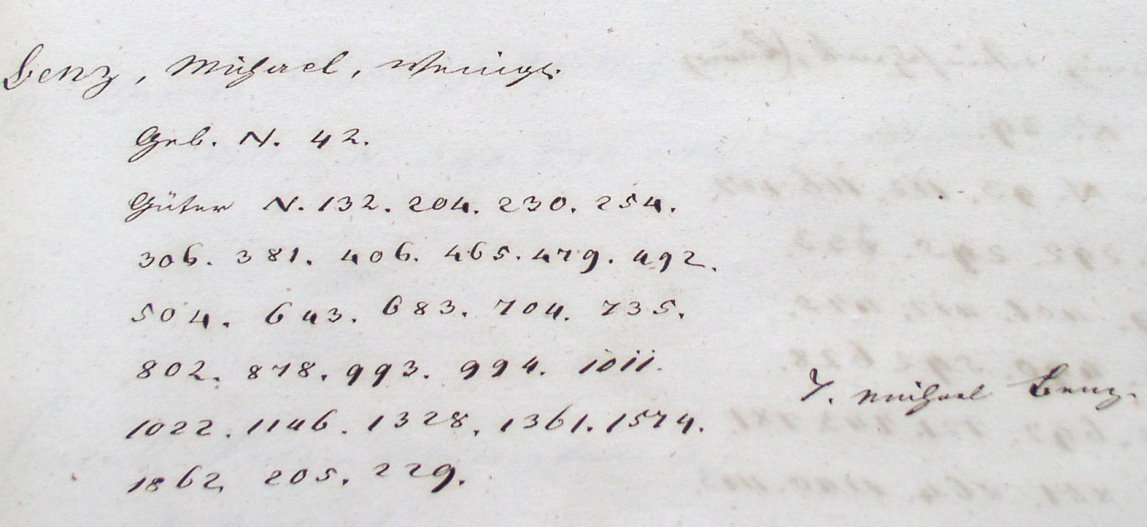 Benz, Michael,
Geb. N. 42.
Güter N. 132. 204. 230. 254.
306. 381. 406. 465. 479. 492.
504. 643. 683. 704. 735.
802. 878. 993. 994. 1011.
1022. 1146. 1328. 1361. 1574.
1862. 205. 229.
Michael Benz.